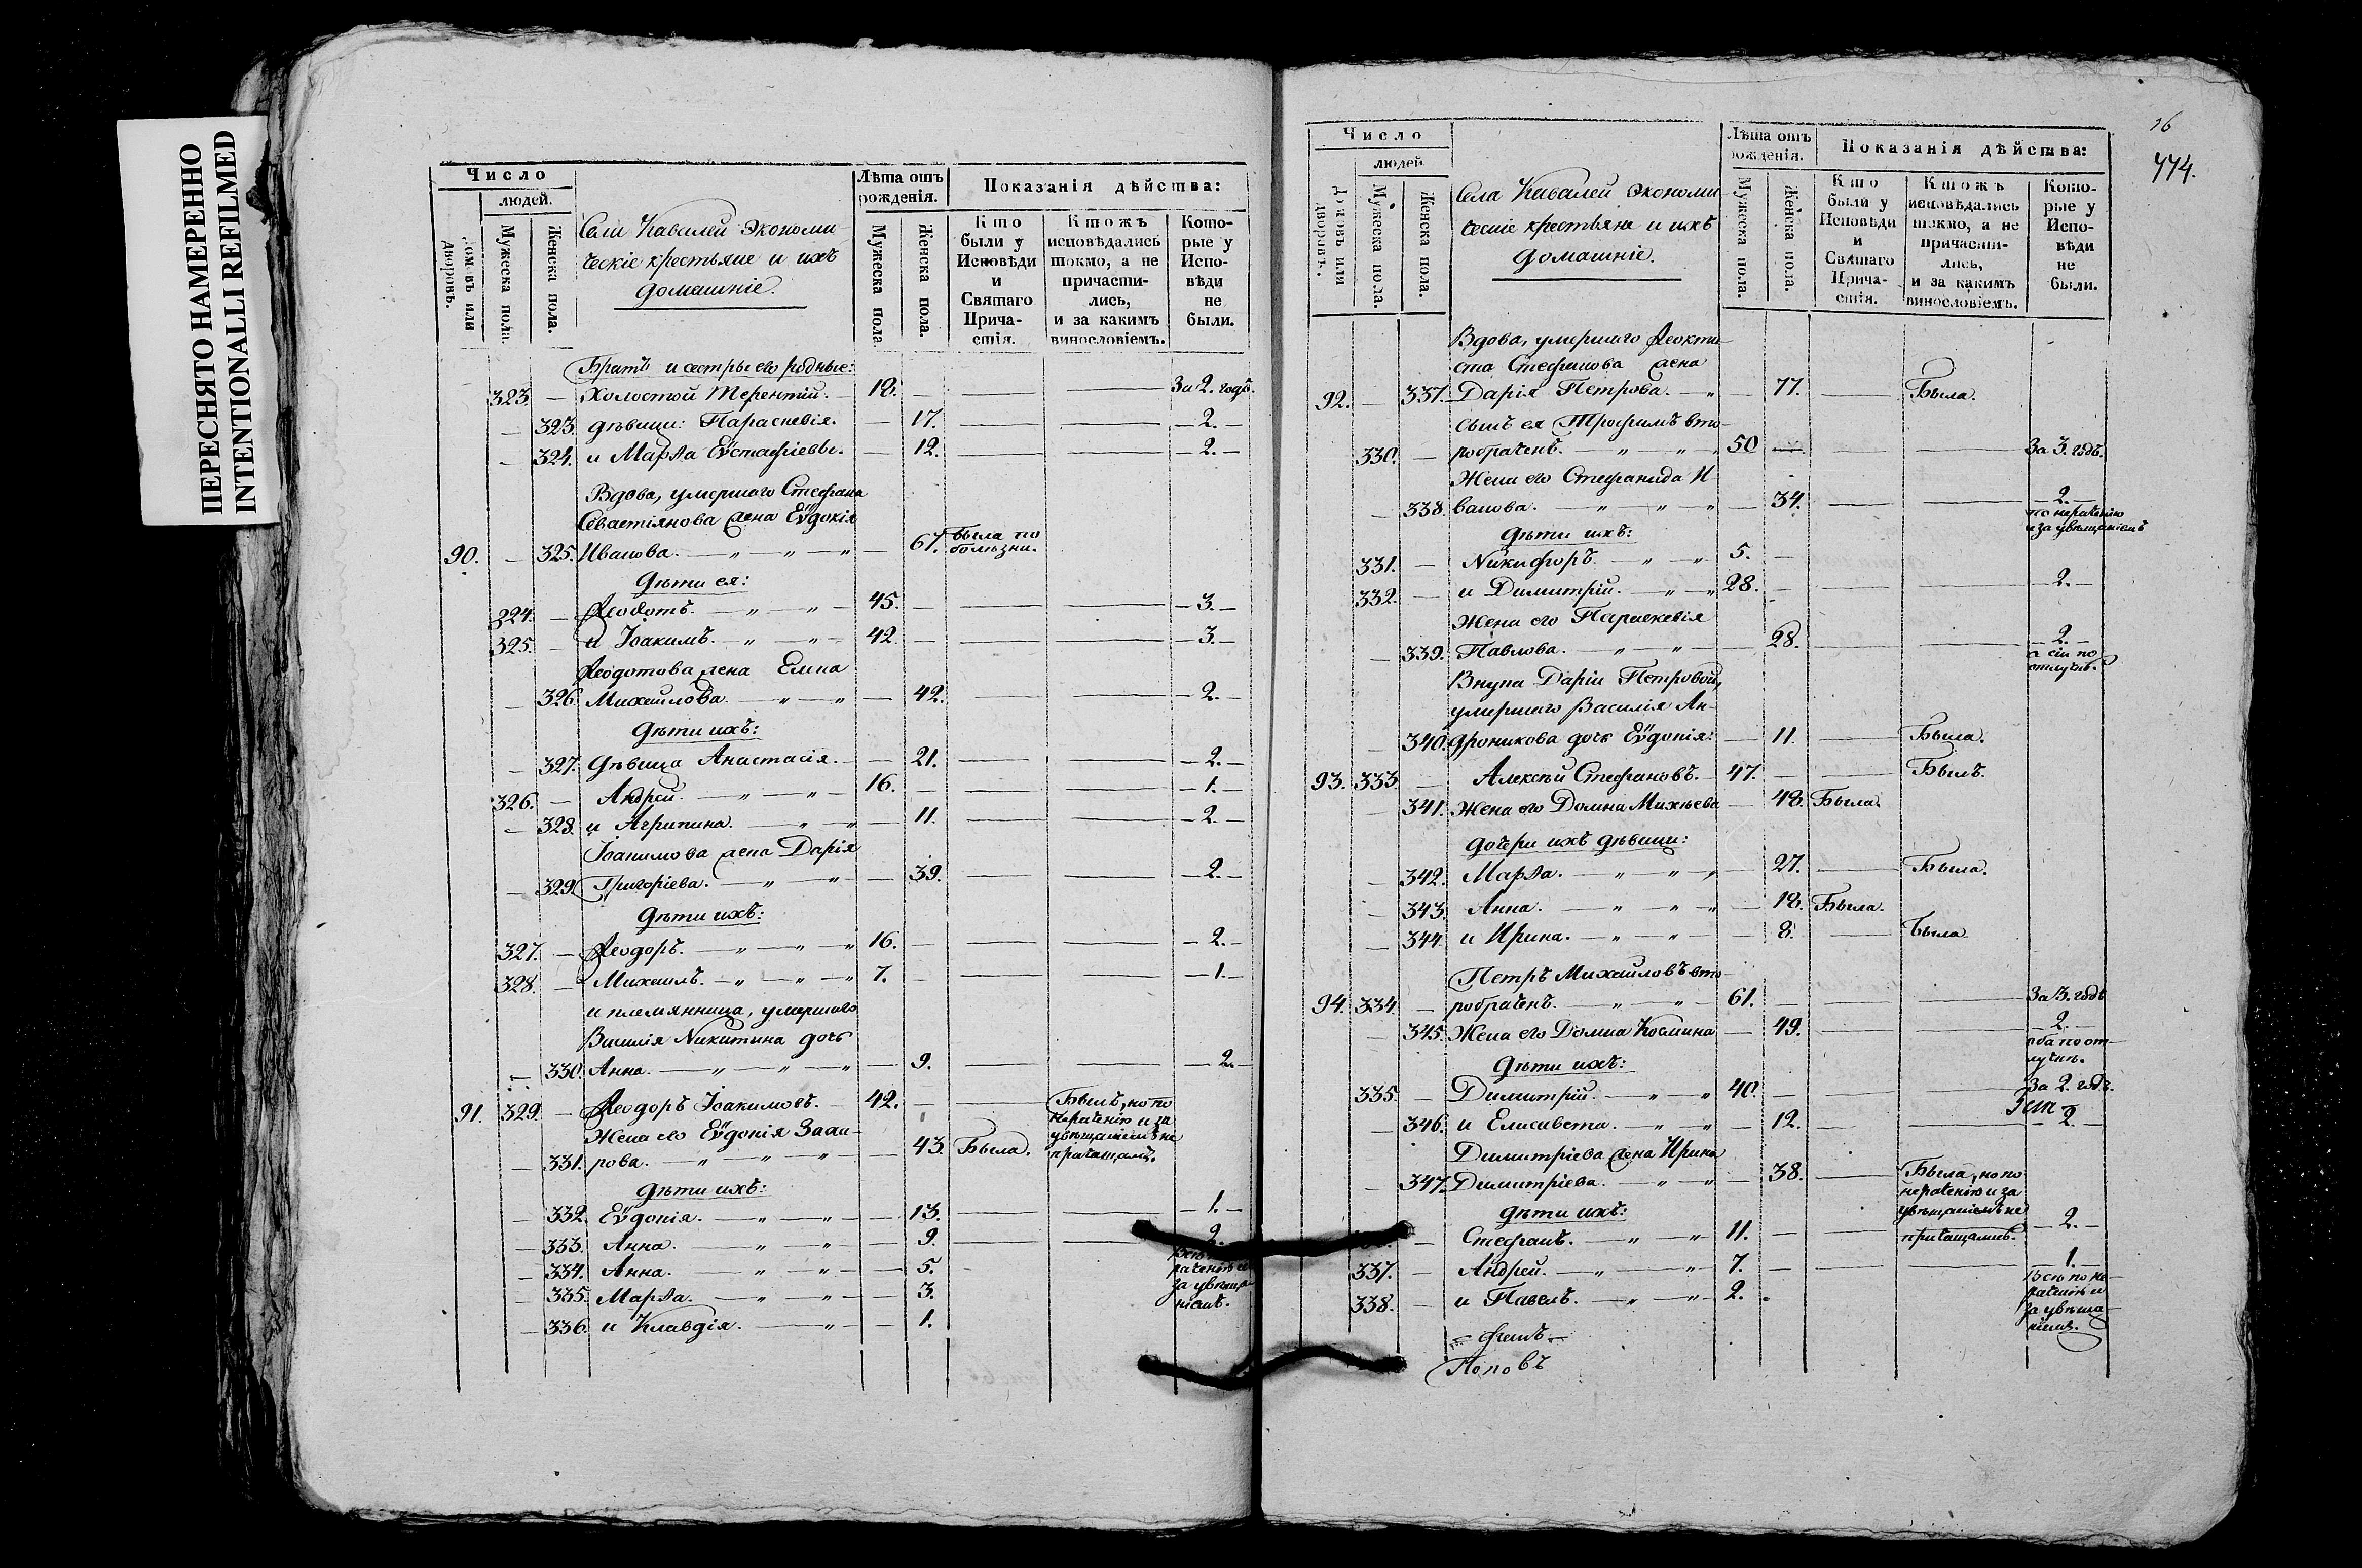 ПЕРЕСНЯТО НАМЕРЕННО
INTENTIONALLI REFILMED
Число
людей.
домовъ или дворовъ.
Мужеска пола.
Женска пола.
Села Кавалей Экономи-
ческіе крестьяне и ихъ
домашніе.
Лѣта отъ рожденія.
Мужеска пола.
Женска пола.
Показанія дѣйства:
Кто были у Исповѣди и Святаго Причастія.
Ктожъ исповѣдались токмо, а не причастились, и за какимъ винословіемъ.
Которые у Исповѣди не были.
Братъ и сестры его родные:
323. — Холостой Терентій. — 18. — — — За 2. года.
— 323. дѣвицы: Параскевія. — 17. — — — 2. —
— 324. и Марѳа Еѵстафіевы. — 12. — — — 2. —
Вдова, умершаго Стефана
Севастіянова жена Еѵдокія
90. — 325. Иванова. — „ — „ — „ — 67. была по болѣзни.
Дѣти ея:
324. — Ѳеодотъ. — „ — „ — 45. — — — — 3. —
325. — и Іоакимъ. — „ — „ — 42. — — — — 3. —
Ѳеодотова жена Елена
— 326. Михайлова. — „ — „ — 42. — — — 2. —
Дѣти ихъ:
— 327. дѣвица Анастасія. — 21. — — — 2. —
326. — Андрей. — „ — „ — 16. — — — — 1. —
— 328. и Агрипина. — „ — „ — 11. — — — 2. —
Іоакимова жена Дарія
— 329. Григоріева. — „ — „ — 39. — — — 2. —
Дѣти ихъ:
327. — Ѳеодоръ. — „ — „ — „ 16. — — — — 2. —
328. — Михаилъ. — „ — „ — „ 7. — — — — 1. —
и племянница, умершаго
Василія Никитина дочь
— 330. Анна. — „ — „ — „ — 9. — — — 2. —
91. 329. — Ѳеодоръ Іоакимовъ. — 42. — — Былъ, но по
нераченію и за
увѣщаніемъ не
причащался.
Жена его Еѵдокія Заха-
— 331. рова. — „ — „ — „ — 43. Была.
Дѣти ихъ:
— 332. Еѵдокія. — „ — „ — 13. — — — 1. —
— 333. Анна. — „ — „ — 9. — — 2.
— 334. Анна. — „ — „ — 5. —
— 335. Марѳа. — „ — „ — 3.
— 336. и Клавдія. — „ — 1.
раченію и
за увѣща-
ніемъ.
16
774.
Число
людей.
Домовъ или дворовъ.
Мужеска пола.
Женска пола.
Села Кавалей Экономи-
ческіе крестьяне и ихъ
домашніе.
Лѣта отъ рожденія.
Мужеска пола.
Женска пола.
Показанія дѣйства:
Кто были у Исповѣди и Святаго Причастія.
Ктожъ исповѣдались токмо, а не причастились, и за какимъ винословіемъ.
Которые у Исповѣди не были.
Вдова, умершаго Ѳеокти-
ста Стефанова жена
92. — 337. Дарія Петрова. — „ — 77. — Была.
сынъ ея Трофимъ вто-
330. — робраченъ. — „ — „ — „ 50 — — — За 3. годъ.
Жена его Стефанида И-
— 338. ванова. — „ — „ — „ — 34. — — 2. —
по нераченію
и за увѣщаніемъ
Дѣти ихъ:
331. — Никифоръ. — „ — „ 5. —
332. — и Димитрій. — „ — „ 28. — — — — 2. —
Жена его Параскевія
— 339. Павлова. — „ — „ — 28. — — — 2. —
а сіи по
отлучкѣ.
Внука Даріи Петровой,
умершаго Василія Ан-
— 340. дроникова дочь Еѵдокія: — 11. — Была.
93. 333. — Алексѣй Стефановъ. — 47. — — Былъ.
— 341. Жена его Домна Михѣева — 48. Была.
дочери ихъ дѣвицы:
— 342. Марѳа. — „ — „ — „ — 27. — Была.
— 343. Анна. — „ — „ — „ — 18. Была.
— 344. и Ирина. — „ — „ — 8. — Была.
Петръ Михайловъ вто-
94. 334. — робраченъ. — „ — „ — 61. — — За 3. годъ
— 345. Жена его Домна Космина — 49. — — 2. —
оба по от-
лучкѣ.
Дѣти ихъ:
335. — Димитрій. — „ — „ 40. — — За 2. годъ.
— 346. и Елисавета. — „ — „ — 12. — — 2. —
Димитріева жена Ирина
— 347. Димитріева. — „ — „ — 38. — Была, но по
нераченію и за
увѣщаніемъ не
причащалась.
Дѣти ихъ:
— Стефанъ. — „ — „ 11. — — — 2. —
337. — Андрей. — „ — „ 7. — — — 1. —
338. — и Павелъ. — „ — „ 2.
Всѣ по не-
раченію и
за увѣща-
ніемъ.
Поповъ